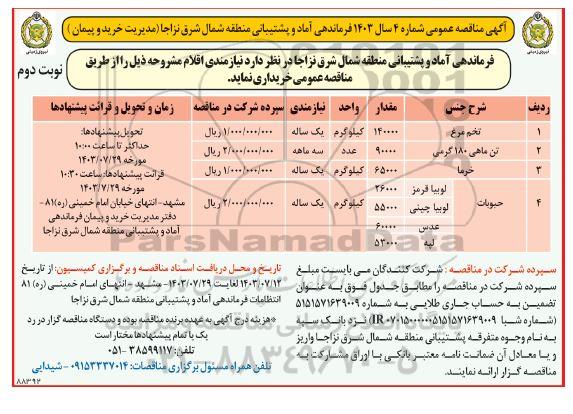 آگهی مناقصه عمومی شماره ۴ سال ۱۴۰۳ فرماندهی آماد و پشتیبانی منطقه شمال شرق نزاجا (مدیریت خرید و پیمان)
نوبت دوم
فرماندهی آماد و پشتیبانی منطقه شمال شرق نزاجا در نظر دارد نیازمندی اقلام مشروحه ذیل را از طریق
مناقصه عمومی خریداری نماید.
ردیف شرح جنس مقدار واحد نیازمندی سپرده شرکت در مناقصه زمان و تحویل و قرائت پیشنهادها
۱ تخم مرغ ۱۴۰۰۰۰ کیلوگرم یک ساله ۱/۰۰۰/۰۰۰/۰۰۰ ریال
۲ تن ماهی ۱۸۰ گرمی ۹۰۰۰۰ عدد سه ماهه ۲/۰۰۰/۰۰۰/۰۰۰ ریال
۳ خرما ۶۵۰۰۰ کیلوگرم یک ساله ۱/۰۰۰/۰۰۰/۰۰۰ ریال
۴ حبوبات کیلوگرم یک ساله ۲/۰۰۰/۰۰۰/۰۰۰ ریال
لوبیا قرمز ۲۶۰۰۰
لوبیا چیتی ۵۵۰۰۰
عدس ۶۰۰۰۰
لپه ۵۳۰۰۰
تحویل پیشنهادها:
حداکثر تا ساعت ۱۰:۰۰
مورخه ۱۴۰۳/۰۷/۲۹
قرائت پیشنهادها: ساعت ۱۰:۳۰
مورخه ۱۴۰۳/۷/۲۹
مشهد-انتهای خیابان امام خمینی (ره) ۸۱-
دفتر مدیریت خرید و پیمان فرماندهی
آماد و پشتیبانی منطقه شمال شرق نزاجا
سپرده شرکت در مناقصه : شرکت کنندگان می بایست مبلغ
سپرده شرکت در مناقصه را مطابق جدول فوق به عنوان
تضمین به حساب جاری طلایی به شماره ۵۱۵۱۵۷۱۶۳۹۰۰۹
نزد بانک سپه
به نام وجوه متفرقه پشتیبانی منطقه شمال شرق نزاجا واریز
و یا معادل آن ضمانت نامه معتبر بانکی یا اوراق مشارکت به
مناقصه گزار ارائه نمایند.
تاریخ و محل دریافت اسناد مناقصه و برگزاری کمیسیون: از تاریخ
۱۴۰۳/۰۷/۱۲ لغایت ۱۴۰۳/۰۷/۲۹ - مشهد - انتهای امام خمینی (ره) ۸۱
انتظامات فرماندهی آماد و پشتیبانی منطقه شمال شرق نزاجا
*هزینه درج آگهی به عهده برنده مناقصه بوده و دستگاه مناقصه گزار در رد
یک یا تمام پیشنهادها مختار است
تلفن: ۳۸۵۹۹۱۱۷-۰۵۱
تلفن همراه مسئول برگزاری مناقصات: ۰۹۱۵۳۳۳۷۰۱۴ - شیدایی
۸۸۳۹۲
ParsNamadData
۰۲۱-۸۸۳۴۹۶۷۰-۵